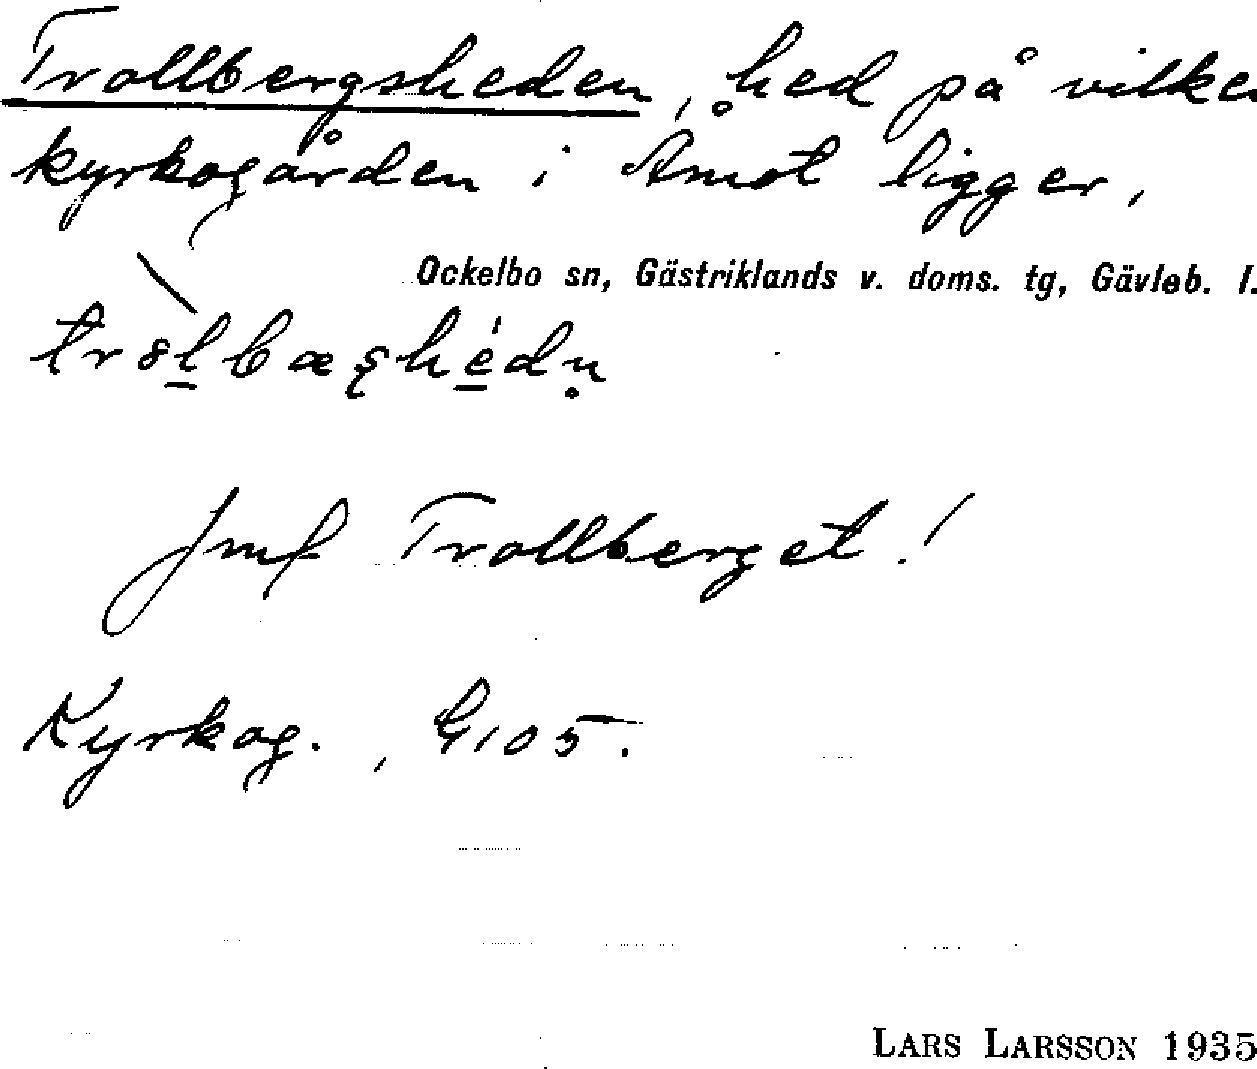 Trollbergsheden, hed på vilken
kyrkogården i Åmot ligger,
Ockelbo sn, Gästriklands v. doms. tg, Gävleb. l.
Jmf Trollberget!
Kyrkog., G105.
LARS LARSSON 1935